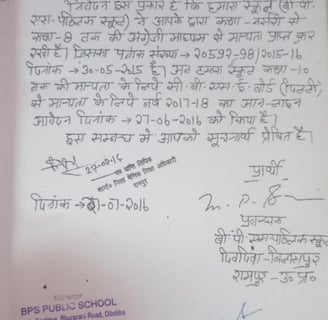 निवेदन इस प्रकार है कि हमारा स्कूल (बी० पी०
एस० पब्लिक स्कूल) ने आपके द्वारा कक्षा - नर्सरी से
कक्षा - 8 तक की अंग्रेजी माध्यम से मान्यता प्राप्त कर
रखी है। जिसका पत्रांक संख्या → 20592-98/2015-16
दिनांक → 30-05-2015 है। अब हमारा स्कूल कक्षा - 10
तक की मान्यता के लिये सी० बी० एस० ई० बोर्ड (दिल्ली)
से मान्यता के लिये वर्ष 2017-18 का आन-लाइन
आवेदन दिनांक → 27-06-2016 को किया है।
इस सम्बन्ध में आपको सूचनार्थ प्रेषित है।
27-07-16
कार्यालय जिला बेसिक शिक्षा अधिकारी
रामपुर
दिनांक → 21-07-2016
प्रार्थी
प्रबन्धक
बी पी एस पब्लिक स्कूल
बिलासपुर
रामपुर - उ० प्र०
Manager
BPS PUBLIC SCHOOL
Road, Dibdiba